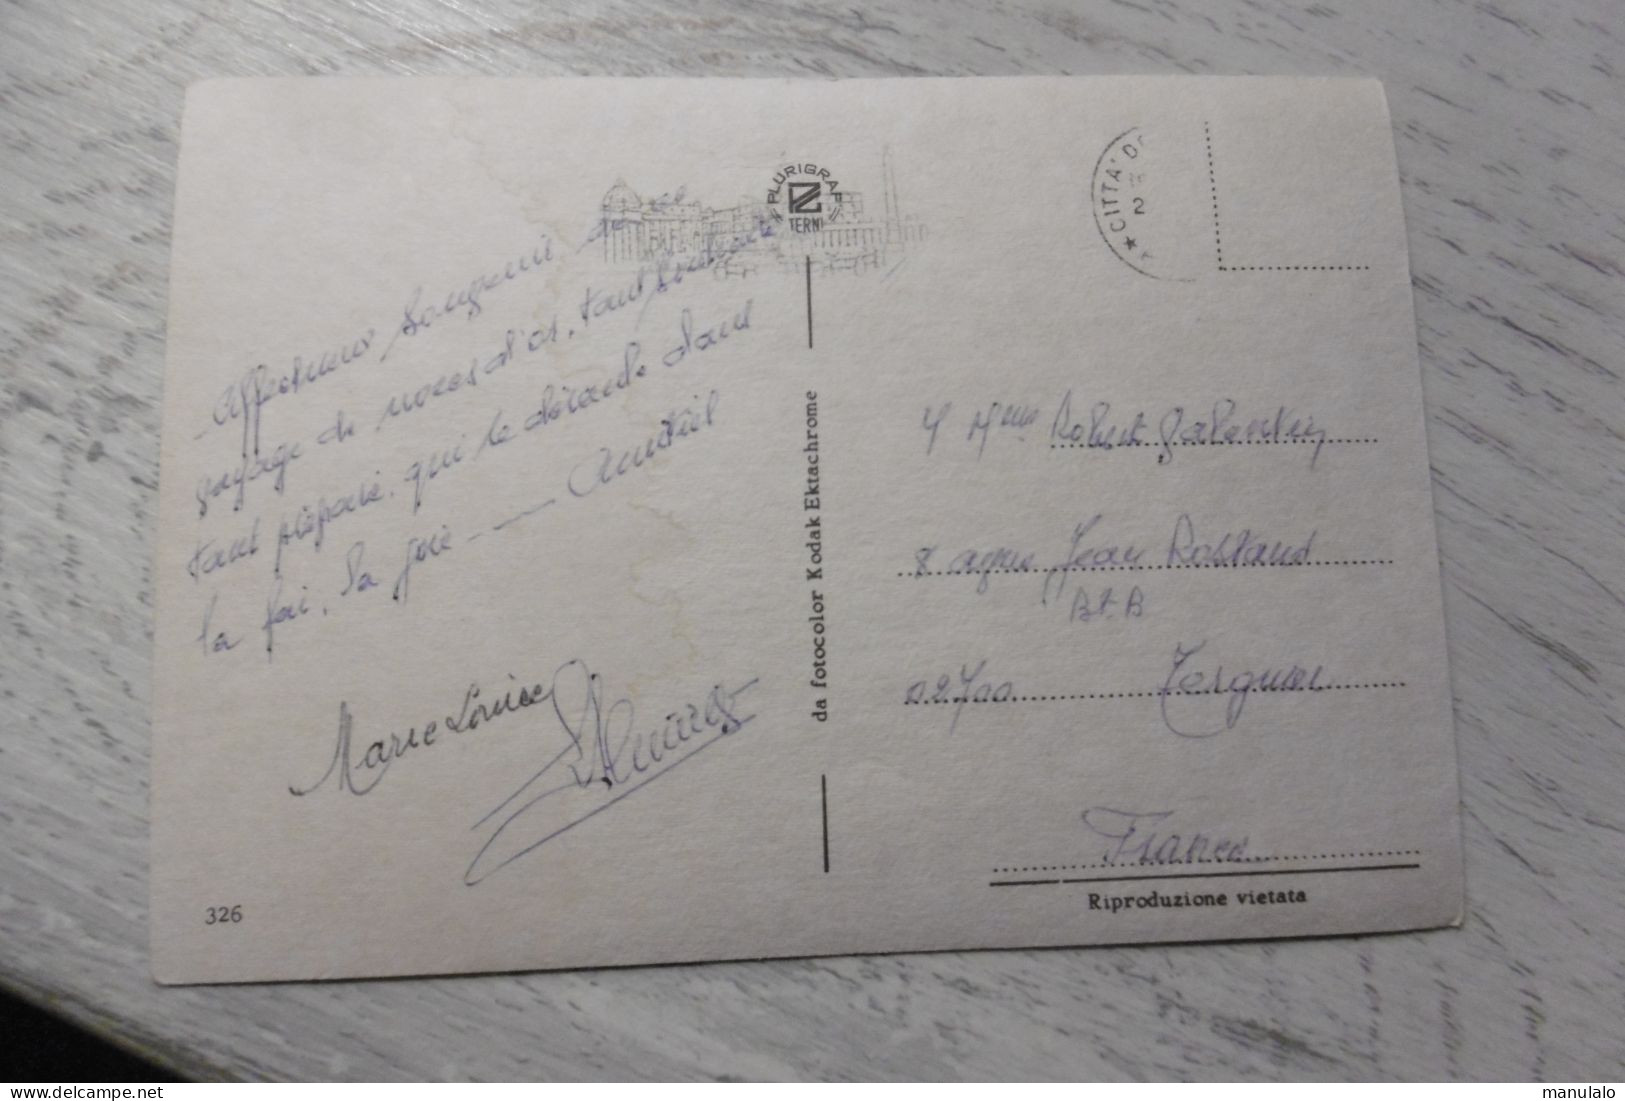 Affectueux Souvenir de ce
voyage de noces d'or, tant souhaité
tant préparé, qui se déroule dans
la foi, la joie — Amitiés
Marie Louise
326
PLURIGRAF
TERNI
da fotocolor Kodak Ektachrome
★ CITTA' D
2
Mme Robert Valentin
8 Jean Rostand
Bt. B
02700 Tergnier
France
Riproduzione vietata
manulalo